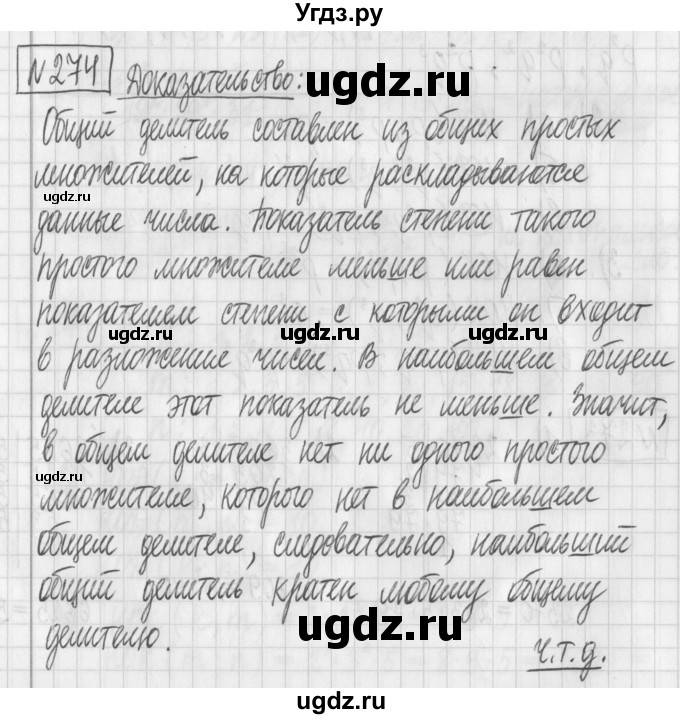 Угдз.ру
№274 Доказательство: ugdz.ru
Общий делитель составлен из общих простых
множителей, на которые раскладываются
ugdz.ru
данные числа. Показатель степени такого
простого множителя меньше или равен
показателем степени, с которыми он входит
ugdz.ru ugdz.ru ugdz.ru
в разложение чисел. В наибольшем общем
делителе этот показатель не меньше. Значит,
в общем делителе нет ни одного простого
ugdz.ru
множителя, которого нет в наибольшем
общем делителе, следовательно, наибольший
общий делитель кратен любому общему
делителю. ugdz.ru
ч.т.д.
ugdz.ru